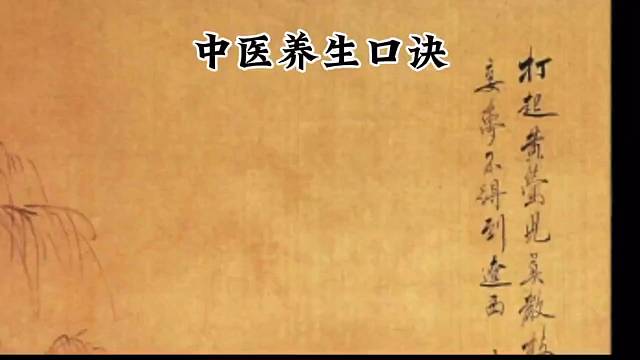 中医养生口诀
打起黄莺儿莫教枝
妾梦不得到辽西